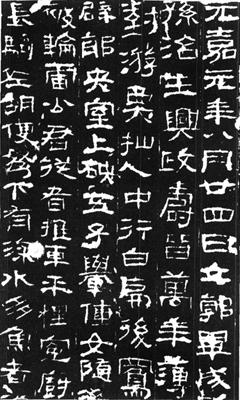 元嘉元年八月廿四日立郭畢成
孫治生興政壽皆萬年薄
對游仙人中行白虎後鳳
辟邪央室上硤五子轝使女隨
被輪雷公君從者推車平桯冤厨
長騎左胡使弩下有深水多魚者